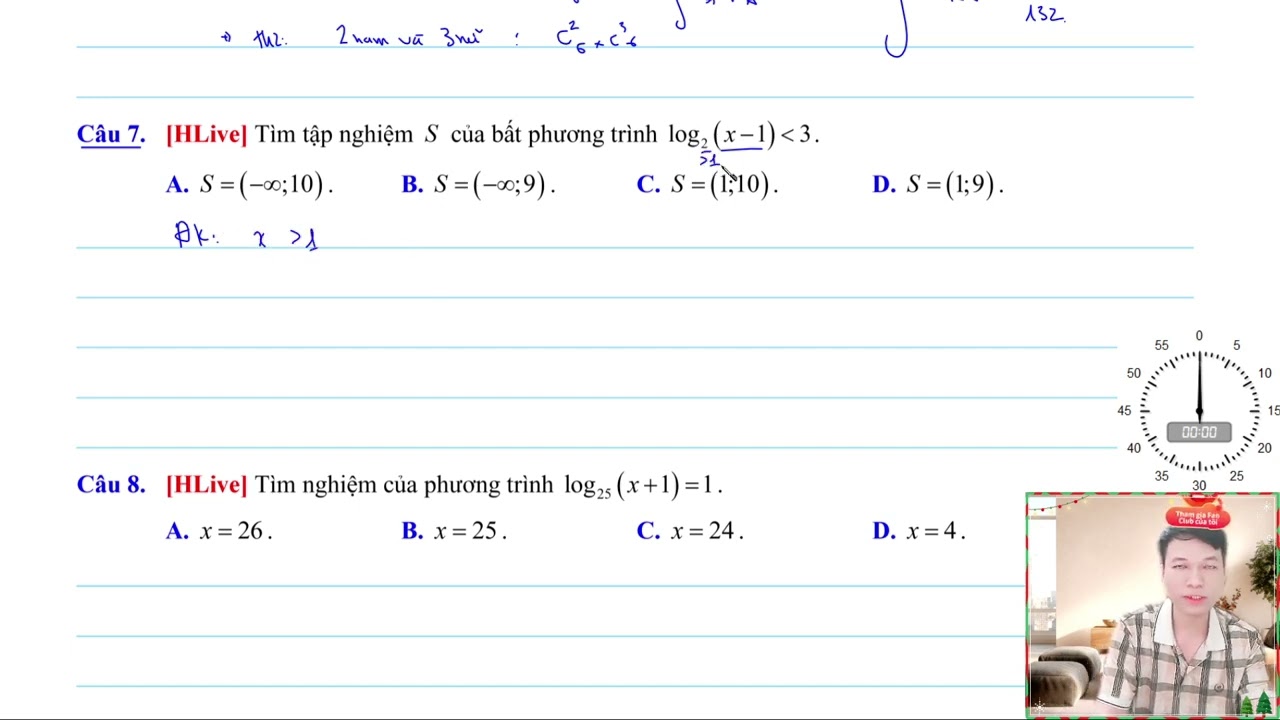 132.
th2: 2 nam và 3 nữ : C²₆ × C³₆
Câu 7. [HLive] Tìm tập nghiệm S của bất phương trình log₂(x−1)<3.
>1
A. S=(−∞;10). B. S=(−∞;9). C. S=(1;10). D. S=(1;9).
Đk: x >1
Câu 8. [HLive] Tìm nghiệm của phương trình log₂₅(x+1)=1.
A. x=26. B. x=25. C. x=24. D. x=4.
0
55 5
50 10
45 15
00:00
40 20
35 25
30
Tham gia Fan
Club của tôi